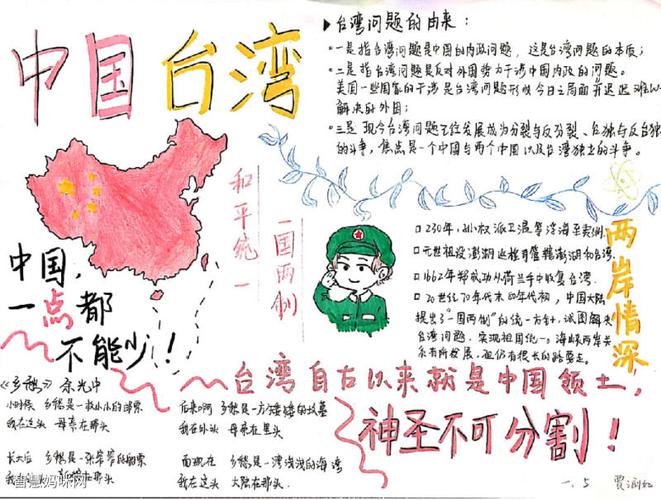 中国台湾
▶台湾问题的由来：
一是指台湾问题是中国的内政问题，这是台湾问题的本质；
二是指台湾问题是反对外国势力干涉中国内政的问题。
美国一些国家的干涉是台湾问题形成今日之局面并迟迟难以
解决的外因；
三是现今台湾问题已经发展成为分裂与反分裂、台独与反台独
的斗争，焦点是一个中国与两个中国以及台湾独立的斗争。
和平统一
一国两制
中国，
一点都
不能少！
两岸情深
230年，孙权派卫温等渡海至夷洲
元世祖设澎湖巡检司管辖澎湖和台湾
1662年郑成功从荷兰手中收复台湾
20世纪70年代末80年代初，中国大陆
提出了"一国两制"的统一方针，试图解决
台湾问题，实现祖国统一。海峡两岸关
系有所发展，
台湾自古以来就是中国领土，
神圣不可分割！
《乡愁》余光中
小时候 乡愁是一枚小小的邮票
我在这头 母亲在那头
长大后 乡愁是一张窄窄的船票
我在这头 新娘在那头
后来啊 乡愁是一方矮矮的坟墓
我在外头 母亲在里头
而现在 乡愁是一湾浅浅的海湾
我在这头 大陆在那头
智慧妈咪网
一.5